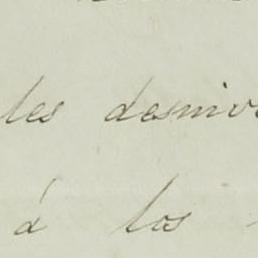 les desniv
á los